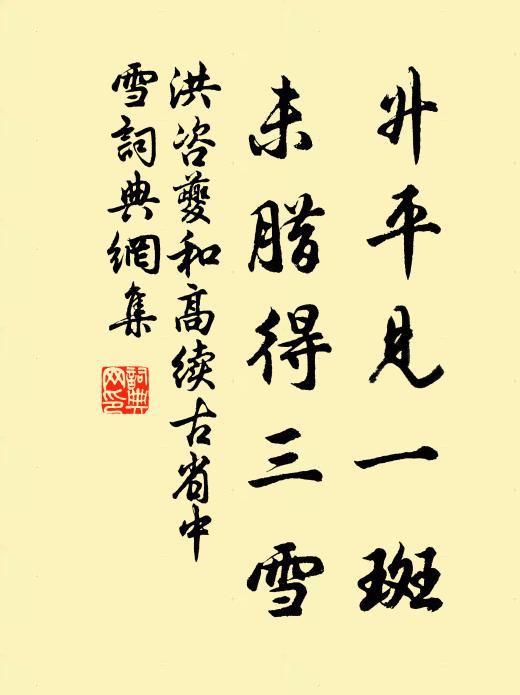 升平見一斑
未腊得三雪
洪咨夔和高續古省中
雪詞典網集
詞典网印